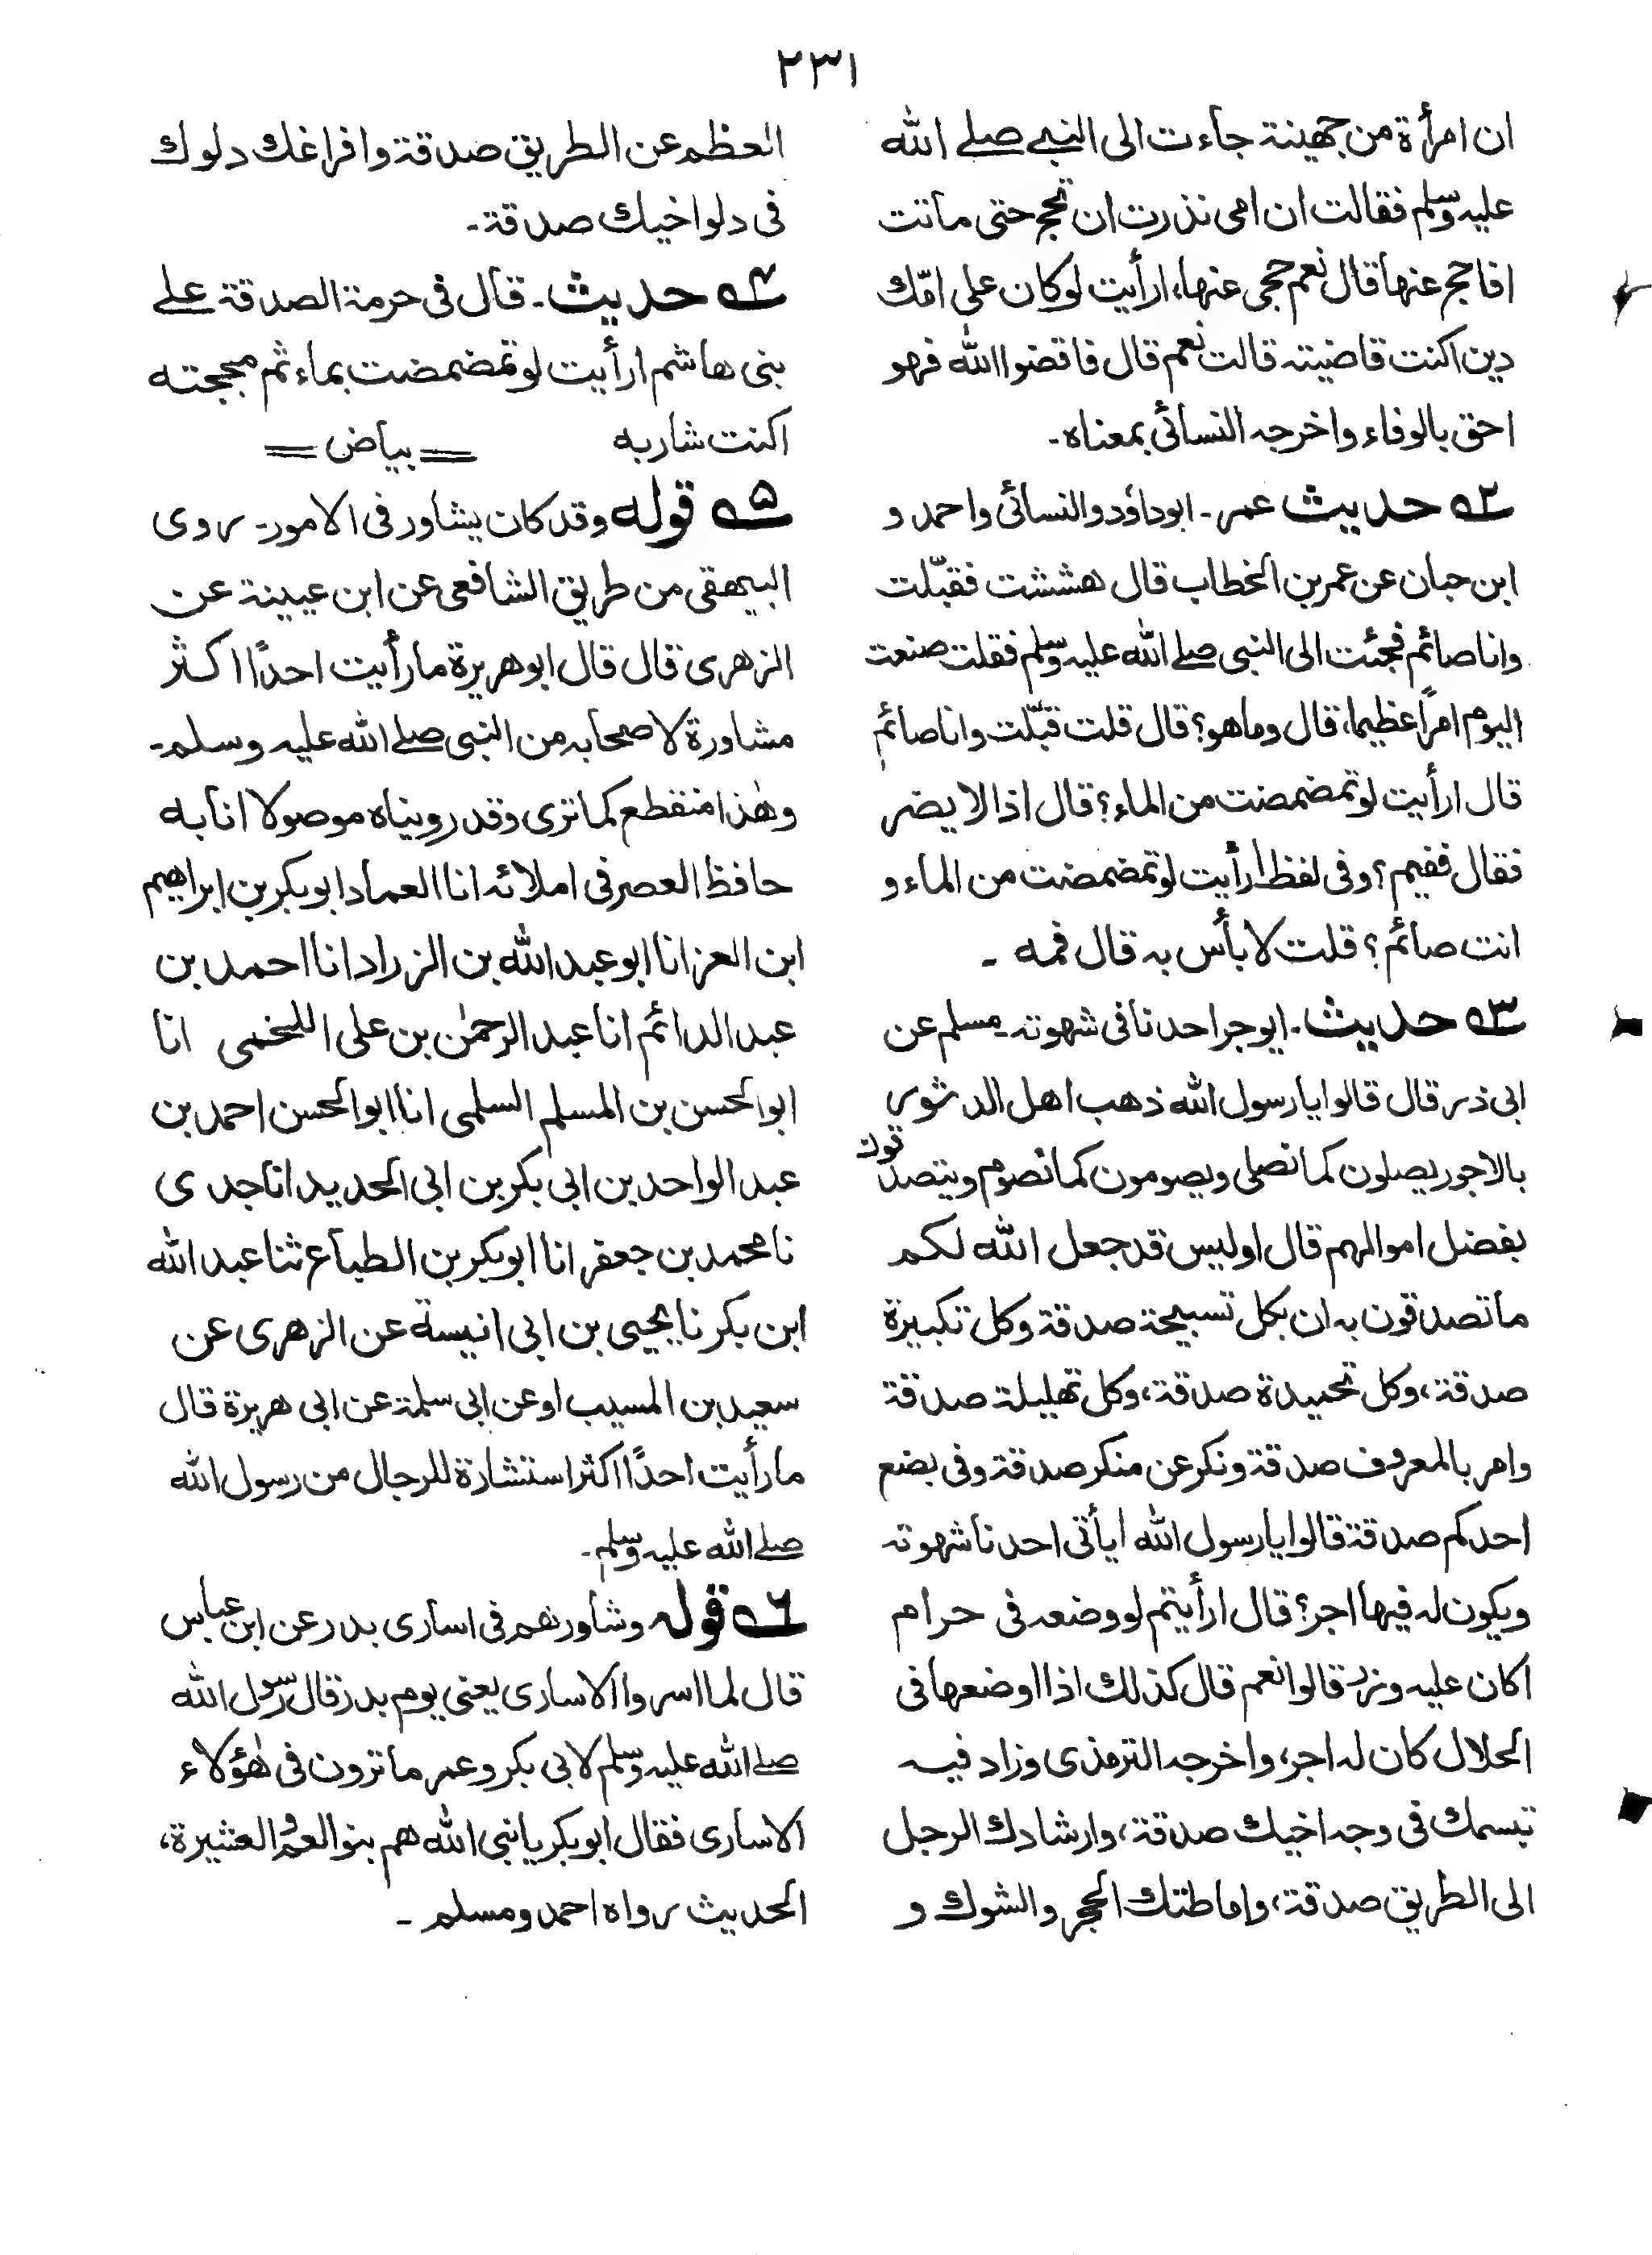 ٢٣١
ان امرأة من جهينة جاءت الى النبي صلے الله
عليه وسلم فقالت ان امى نذرت ان تحج حتى ماتت
افاحج عنها قال نعم حجى عنها، ارأيت لو كان على امّك
دين اكنت قاضيته قالت نعم قال فاقضوا الله فهو
احق بالوفاء واخرجه النسائى بمعناه۔
۲ حديث عمر۔ ابوداؤد والنسائى واحمد و
ابن حبان عن عمر بن الخطاب قال هششت فقبّلت
وانا صائم فجئت الى النبى صلے الله عليه وسلم فقلت صنعت
اليوم امرًا عظيما، قال وما هو؟ قال قلت قبّلت وانا صائم
قال ارأيت لو تمضمضت من الماء؟ قال اذا لا يضر
فقال ففيم؟ وفى لفظ ارأيت لو تمضمضت من الماء و
انت صائم؟ قلت لا بأس به قال فمه ۔
۳ حديث۔ ايوجر احدنا فى شهوته۔ مسلم عن
ابى ذر قال قالوا يا رسول الله ذهب اهل الدثور
بالاجور يصلون كما نصلى ويصومون كما نصوم ويتصدقون
بفضل اموالهم قال اوليس قد جعل الله لكم
ما تصدقون به ان بكل تسبيحة صدقة وكل تكبيرة
صدقة، وكل تحميدة صدقة، وكل تهليلة صدقة
وامر بالمعروف صدقة ونكر عن منكر صدقة وفى بضع
احدكم صدقة قالوا يا رسول الله ايأتى احدنا شهوته
ويكون له فيها اجر؟ قال ارأيتم لو وضعه فى حرام
اكان عليه وزر قالوا نعم قال كذلك اذا اوضعها فى
الحلال كان له اجر، واخرجه الترمذى وزاد فيه
تبسمك فى وجه اخيك صدقة، وارشادك الرجل
الى الطريق صدقة، واماطتك الحجر والشوك و
العظم عن الطريق صدقة وافراغك دلوك
فى دلو اخيك صدقة۔
۴ حديث۔ قال فى حرمة الصدقة علے
بنى هاشم ارأيت لو تمضمضت بماء ثم مججته
اكنت شاربه = بياض =
۵ قوله وقد كان يشاور فى الامور۔ روى
البيهقى من طريق الشافعى عن ابن عيينة عن
الزهرى قال قال ابو هريرة ما رأيت احدًا اكثر
مشاورة لاصحابه من النبى صلے الله عليه وسلم۔
وهٰذا منقطع كما ترى وقد رويناه موصولا انا به
حافظ العصر فى املائه انا العماد ابوبكر بن ابراهيم
ابن العز انا ابو عبد الله بن الزراد انا احمد بن
عبد الدائم انا عبد الرحمٰن بن على اللخمى انا
ابو الحسن بن المسلم السلمى انا ابو الحسن احمد بن
عبد الواحد بن ابى بكر بن ابى الحديد انا جدى
نا محمد بن جعفر انا ابو بكر بن الطباع ثنا عبد الله
ابن بكر نا يحيى بن ابى انيسة عن الزهرى عن
سعيد بن المسيب او عن ابى سلمة عن ابى هريرة قال
ما رأيت احدًا اكثر استشارة للرجال من رسول الله
صلے الله عليه وسلم۔
۶ قوله وشاورهم فى اسارى بدر عن ابن عباس
قال لما اسروا الاسارى يعنى يوم بدر قال رسول الله
صلے الله عليه وسلم لابى بكر وعمر ما ترون فى هٰؤلاء
الاسارى فقال ابو بكر يا نبى الله هم بنو العم والعشيرة،
الحديث رواه احمد ومسلم ۔